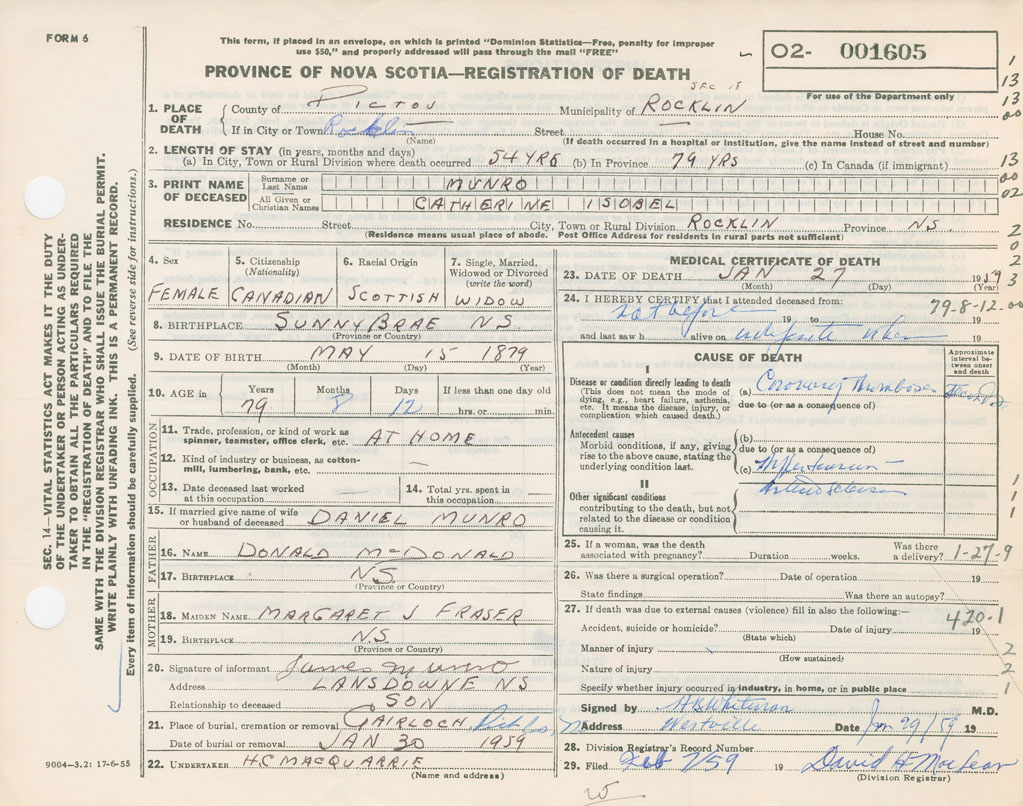 FORM 6
This form, if placed in an envelope, on which is printed "Dominion Statistics—Free, penalty for improper
use $50," and properly addressed will pass through the mail "FREE"
O2- 001605
For use of the Department only
PROVINCE OF NOVA SCOTIA—REGISTRATION OF DEATH
1. PLACE OF DEATH { County of PICTOU Municipality of ROCKLIN
If in City or Town Rocklin Street House No.
(Name) (If death occurred in a hospital or institution, give the name instead of street and number)
2. LENGTH OF STAY (in years, months and days)
(a) In City, Town or Rural Division where death occurred 54 YRS (b) In Province 79 YRS (c) In Canada (if immigrant)
3. PRINT NAME OF DECEASED
Surname or Last Name MUNRO
All Given or Christian Names CATHERINE ISOBEL
RESIDENCE No. Street City, Town or Rural Division ROCKLIN Province NS.
(Residence means usual place of abode. Post Office Address for residents in rural parts not sufficient)
4. Sex FEMALE
5. Citizenship (Nationality) CANADIAN
6. Racial Origin SCOTTISH
7. Single, Married, Widowed or Divorced (write the word) WIDOW
8. BIRTHPLACE SUNNYBRAE NS
(Province or Country)
9. DATE OF BIRTH MAY 15 1879
(Month) (Day) (Year)
10. AGE in Years Months Days If less than one day old
79 8 12 hrs. or min.
OCCUPATION
11. Trade, profession, or kind of work as spinner, teamster, office clerk, etc. AT HOME
12. Kind of industry or business, as cotton-mill, lumbering, bank, etc. —
13. Date deceased last worked at this occupation —
14. Total yrs. spent in this occupation —
15. If married give name of wife or husband of deceased DANIEL MUNRO
FATHER
16. NAME DONALD McDONALD
17. BIRTHPLACE NS.
(Province or Country)
MOTHER
18. MAIDEN NAME MARGARET J FRASER
19. BIRTHPLACE NS
(Province or Country)
20. Signature of informant James Munro
Address LANSDOWNE NS
Relationship to deceased SON
21. Place of burial, cremation or removal GAIRLOCH
Date of burial or removal JAN 30 1959
22. UNDERTAKER H.C MACQUARRIE
(Name and address)
MEDICAL CERTIFICATE OF DEATH
23. DATE OF DEATH JAN 27 1959
(Month) (Day) (Year)
24. I HEREBY CERTIFY that I attended deceased from: 79-8-12-00
19 to 19
and last saw h alive on
CAUSE OF DEATH
Approximate interval between onset and death
I
Disease or condition directly leading to death
(This does not mean the mode of dying, e.g., heart failure, asthenia, etc. It means the disease, injury, or complication which caused death.)
(a) Coronary Thrombosis
due to (or as a consequence of)
Antecedent causes
Morbid conditions, if any, giving rise to the above cause, stating the underlying condition last.
(b)
due to (or as a consequence of)
(c) Hypertension
II
Other significant conditions
contributing to the death, but not related to the disease or condition causing it.
25. If a woman, was the death associated with pregnancy? Duration weeks. Was there a delivery? 1-27-9
26. Was there a surgical operation? Date of operation 19
State findings Was there an autopsy?
27. If death was due to external causes (violence) fill in also the following:—
420-1
Accident, suicide or homicide? Date of injury 19
(State which)
Manner of injury
(How sustained)
Nature of injury
Specify whether injury occurred in industry, in home, or in public place
Signed by M.D.
Address Westville Date Jan 29/59 19
28. Division Registrar's Record Number
29. Filed Feb 7/59 19 David H MacLean
(Division Registrar)
SEC. 14—VITAL STATISTICS ACT MAKES IT THE DUTY
OF THE UNDERTAKER OR PERSON ACTING AS UNDER-
TAKER TO OBTAIN ALL THE PARTICULARS REQUIRED
IN THE "REGISTRATION OF DEATH" AND TO FILE THE
SAME WITH THE DIVISION REGISTRAR WHO SHALL ISSUE THE BURIAL PERMIT.
WRITE PLAINLY WITH UNFADING INK. THIS IS A PERMANENT RECORD.
Every item of information should be carefully supplied. (See reverse side for instructions.)
9004—3.2: 17-6-55
1
13
13
00
13
00
02
2
0
2
3
1
1
1
2
2
1